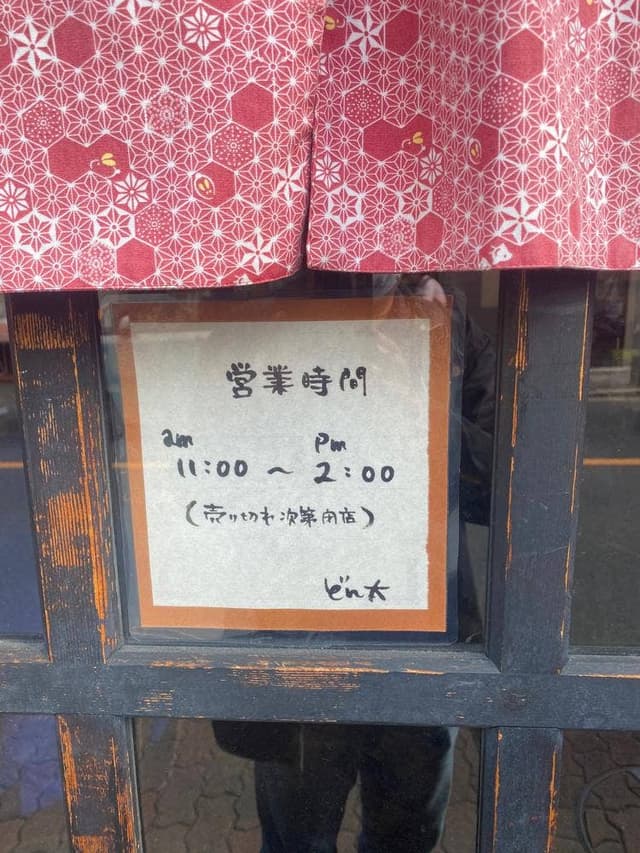 営業時間
am pm
11:00 ~ 2:00
(売り切れ次第閉店)
どん太